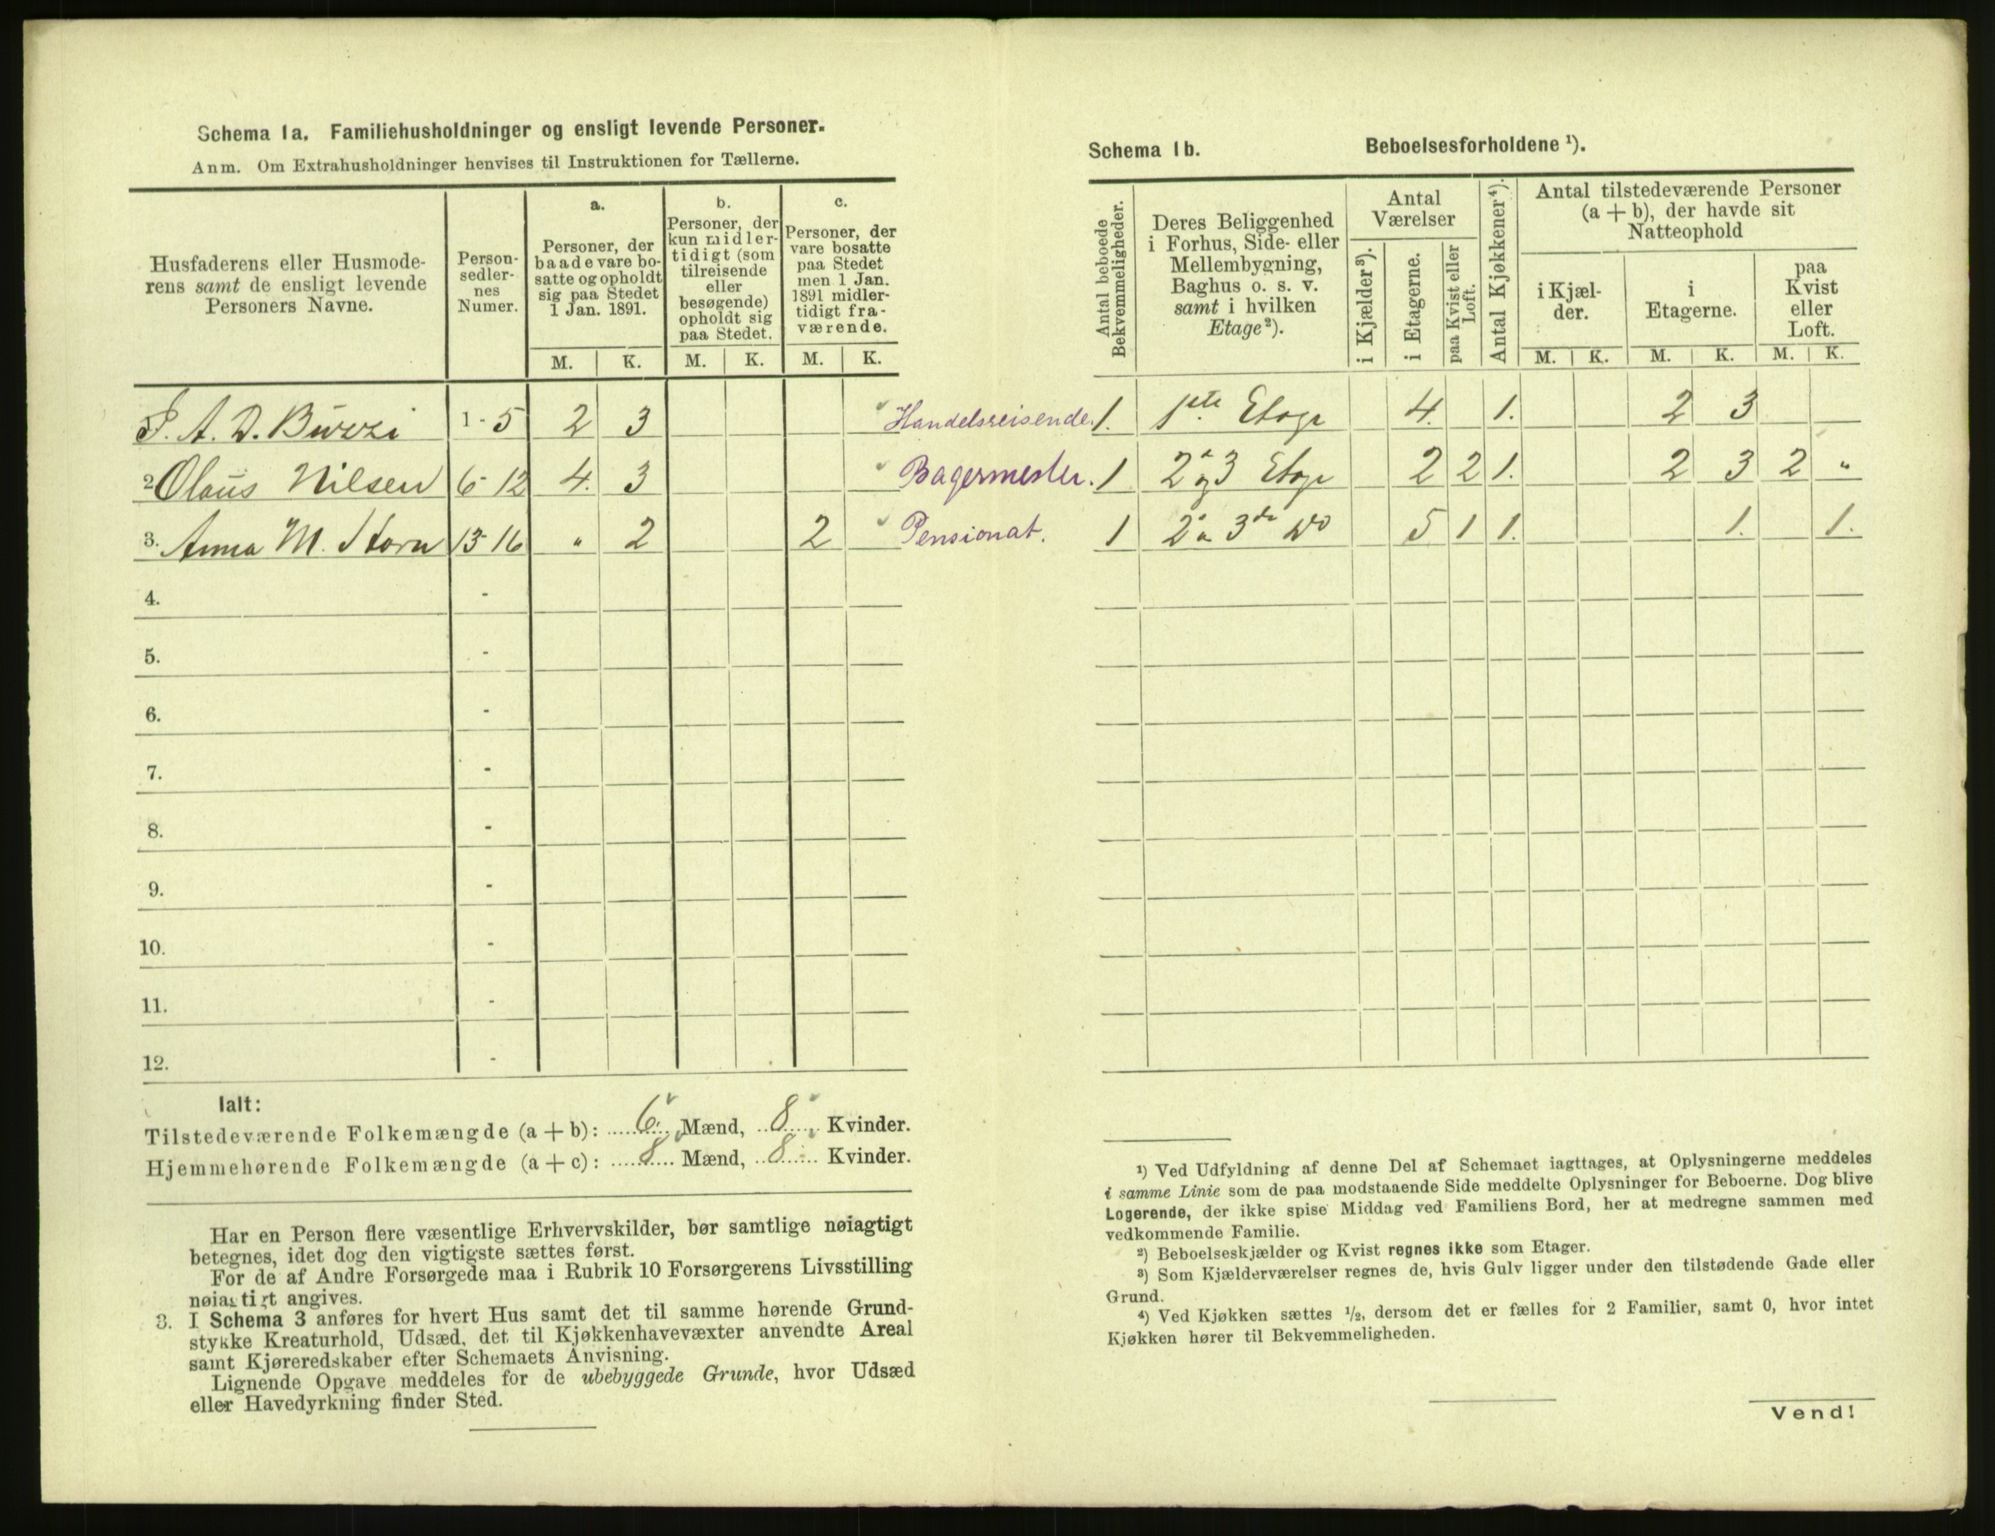 Schema 1a. Familiehusholdninger og ensligt levende Personer.
Anm. Om Extrahusholdninger henvises til Instruktionen for Tællerne.
Husfaderens eller Husmode-
rens samt de ensligt levende
Personers Navne.
Person-
sedler-
nes
Numer.
a.
Personer, der
baade vare bo-
satte og opholdt
sig paa Stedet
1 Jan. 1891.
b.
Personer, der
kun midler-
tidigt (som
tilreisende
eller
besøgende)
opholdt sig
paa Stedet.
c.
Personer, der
vare bosatte
paa Stedet
men 1 Jan.
1891 midler-
tidigt fra-
værende.
M. K. M. K. M. K.
A. D. Buzzi 1-5 2 3 Handelsreisende.
2 Olaus Nilsen 6-12 4. 3 Bagermester.
3. Anna M. Storn 13-16 " 2 2 Pensionat.
4. -
5. -
6. -
7. -
8. -
9. -
10. -
11. -
12. -
Ialt:
Tilstedeværende Folkemængde (a + b): 6. Mænd, 8 Kvinder.
Hjemmehørende Folkemængde (a + c): 8 Mænd, 8 Kvinder.
Har en Person flere væsentlige Erhvervskilder, bør samtlige nøiagtigt
betegnes, idet dog den vigtigste sættes først.
For de af Andre Forsørgede maa i Rubrik 10 Forsørgerens Livsstilling
nøiagtigt angives.
3. I Schema 3 anføres for hvert Hus samt det til samme hørende Grund-
stykke Kreaturhold, Udsæd, det til Kjøkkenhavevæxter anvendte Areal
samt Kjøreredskaber efter Schemaets Anvisning.
Lignende Opgave meddeles for de ubebyggede Grunde, hvor Udsæd
eller Havedyrkning finder Sted.
Schema 1b. Beboelsesforholdene ¹).
Antal beboede
Bekvemmeligheder.
Deres Beliggenhed
i Forhus, Side- eller
Mellembygning,
Baghus o. s. v.
samt i hvilken
Etage²).
Antal
Værelser
i Kjælder³).
i Etagerne.
paa Kvist eller
Loft.
Antal Kjøkkener⁴).
Antal tilstedeværende Personer
(a + b), der havde sit
Natteophold
i Kjæl-
der.
i
Etagerne.
paa
Kvist
eller
Loft.
M. K. M. K. M. K.
1. 1ste Etage 4. 1. 2 3
1 2 og 3 Etage 2 2 1. 2 3 2 "
1 2 3de Do 5 1 1. 1. 1.
¹) Ved Udfyldning af denne Del af Schemaet iagttages, at Oplysningerne meddeles
i samme Linie som de paa modstaaende Side meddelte Oplysninger for Beboerne. Dog blive
Logerende, der ikke spise Middag ved Familiens Bord, her at medregne sammen med
vedkommende Familie.
²) Beboelseskjælder og Kvist regnes ikke som Etager.
³) Som Kjælderværelser regnes de, hvis Gulv ligger under den tilstødende Gade eller
Grund.
⁴) Ved Kjøkken sættes ½, dersom det er fælles for 2 Familier, samt 0, hvor intet
Kjøkken hører til Bekvemmeligheden.
Vend!